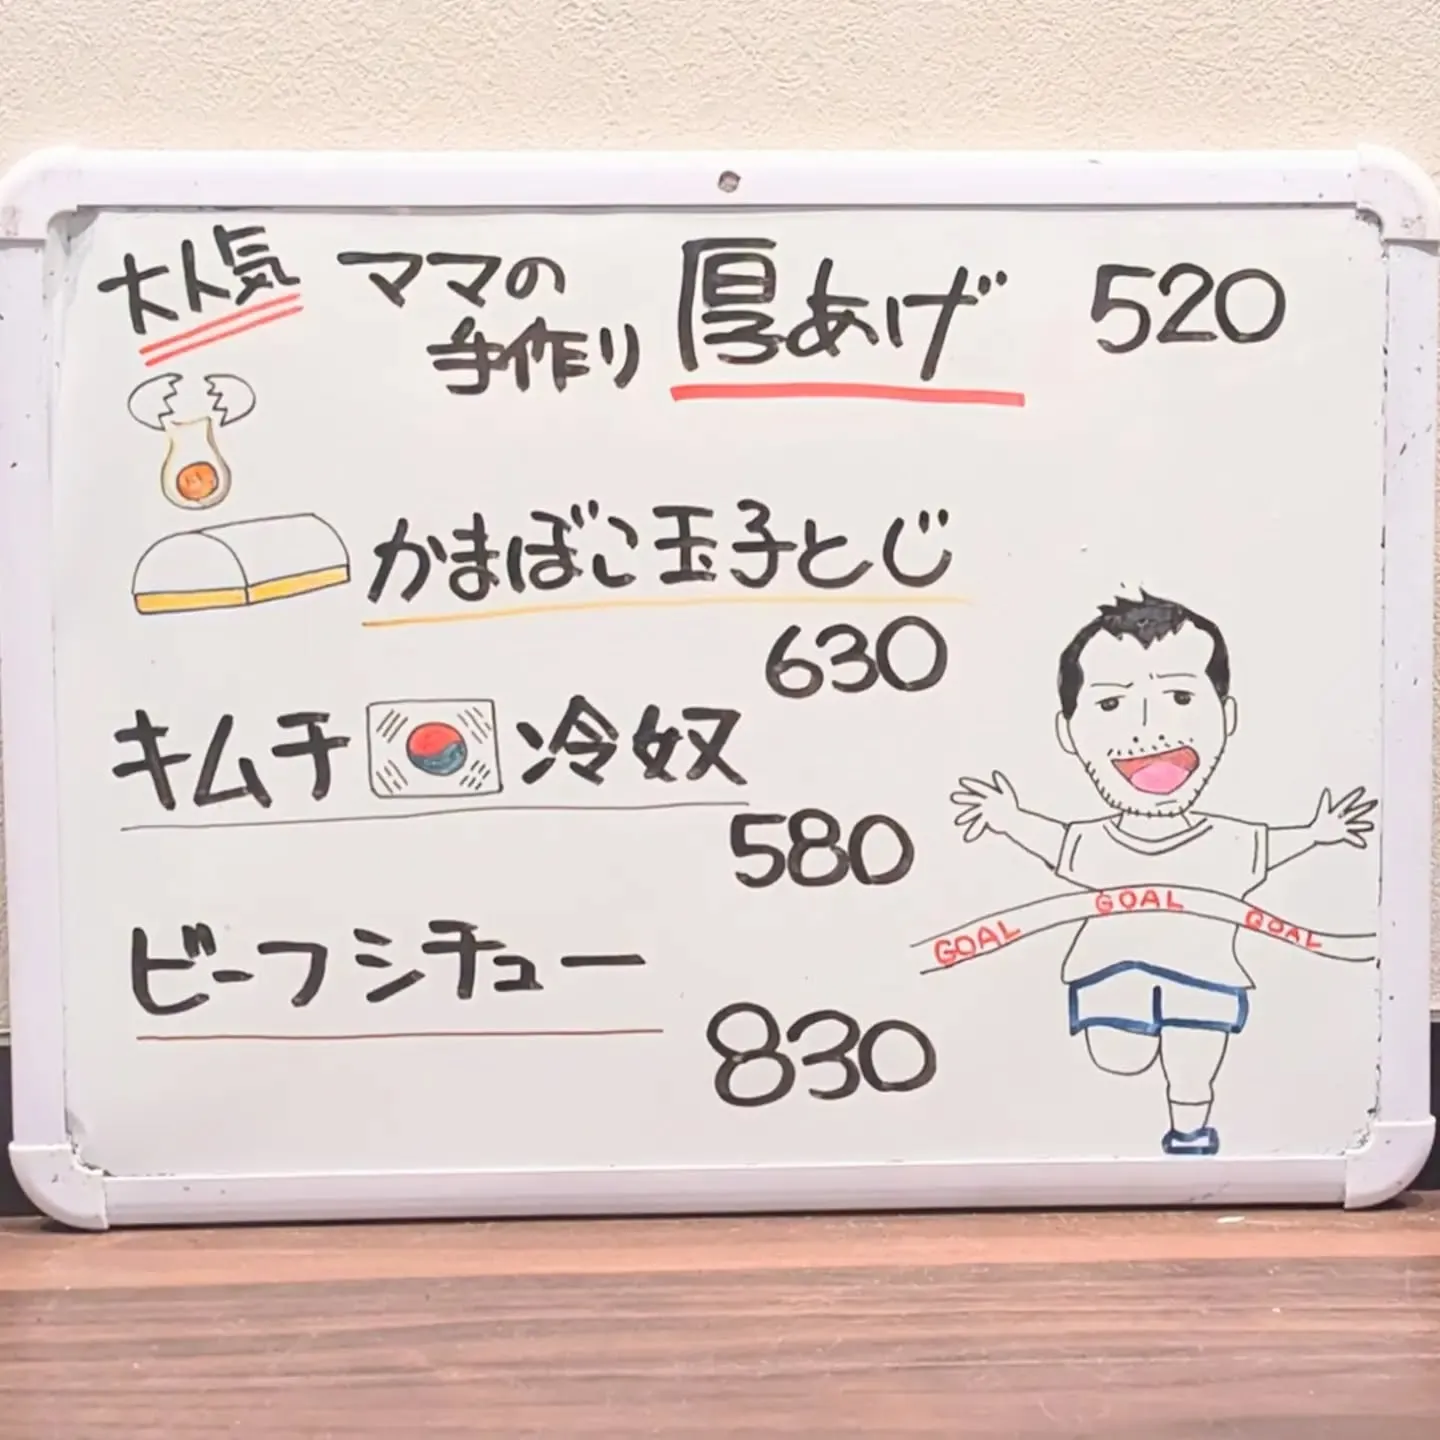 大人気 ママの手作り 厚あげ 520
かまぼこ玉子とじ
630
キムチ冷奴
580
ビーフシチュー
830
GOAL GOAL GOAL